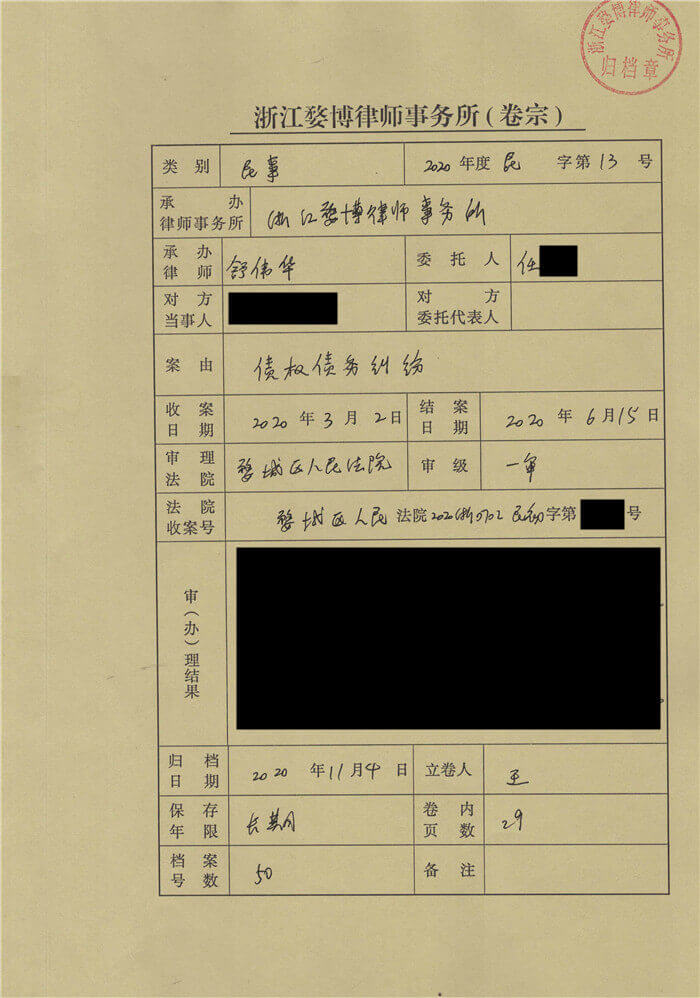 浙江婺博律师事务所
归档章
浙江婺博律师事务所(卷宗)
类 别 民事 2020 年度 民 字第 13 号
承 办
律师事务所 浙江婺博律师事务所
承 办
律 师 舒伟华 委 托 人 任
对 方
当事人
对 方
委托代表人
案 由 债权债务纠纷
收 案
日 期 2020 年 3 月 2 日
结 案
日 期 2020 年 6 月 15 日
审 理
法 院 婺城区人民法院 审 级 一审
法 院
收案号 婺城区人民 法院 2020 浙0702 民初 字第 号
审(办)理结果
归 档
日 期 2020 年 11 月 4 日 立卷人 王
保 存
年 限 长期
卷 内
页 数 29
档 案
号 数 50 备 注